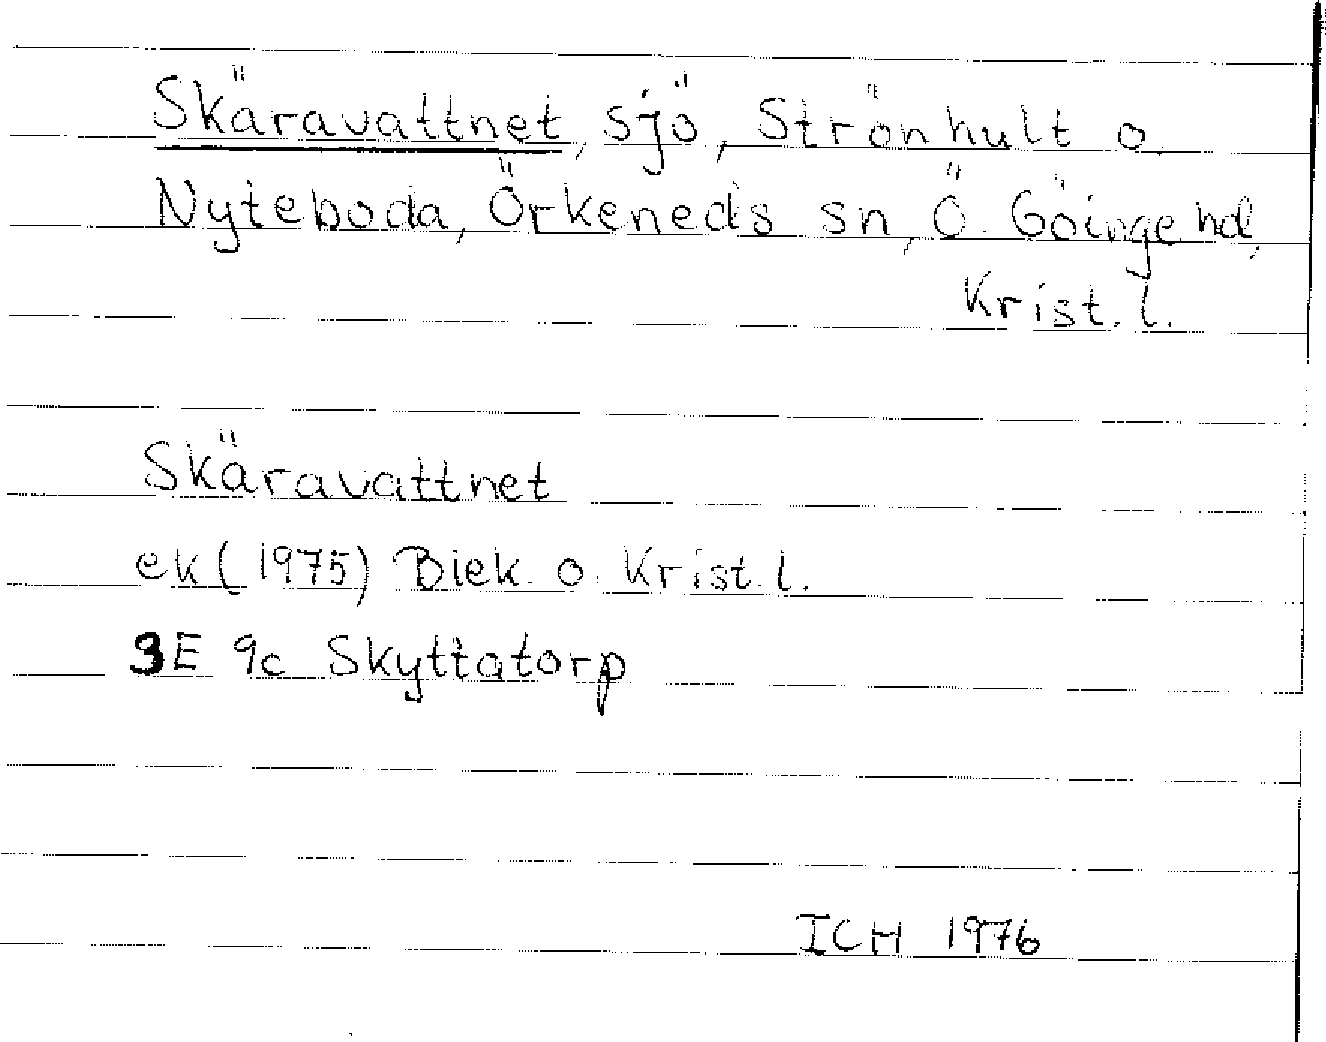 Skäravattnet, sjö, Strönhult o.
Nyteboda, Örkeneds sn, Ö. Göinge hd,
Krist. l.
Skäravattnet
ek (1975) Blek. o. Krist. l.
3E 9c Skyttatorp
ICH 1976